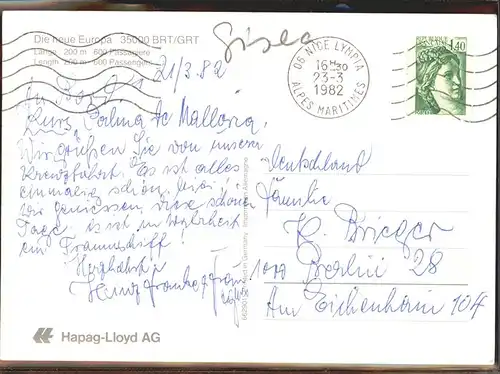 Die neue Europa 35000 BRT/GRT
Länge 200 m 600 Passagiere
Length 200 m 600 passengers
Gisela
21/3.82
An Bord
Kurs Palma de Mallorca
Wir grüßen Sie von unserer
Kreuzfahrt. Es ist alles
einmalig schön,
Wir geniessen diese schönen
Tage, es ist in Wahrheit
ein Traumschiff!
Herzlichst
Heinz Franke + Frau
06 NICE LYMPIA
16H30
23-3
1982
ALPES MARITIMES
1,40
Deutschland
Familie
H. Brieger
1000 Berlin 28
Am Eichenhain 104
Hapag-Lloyd AG